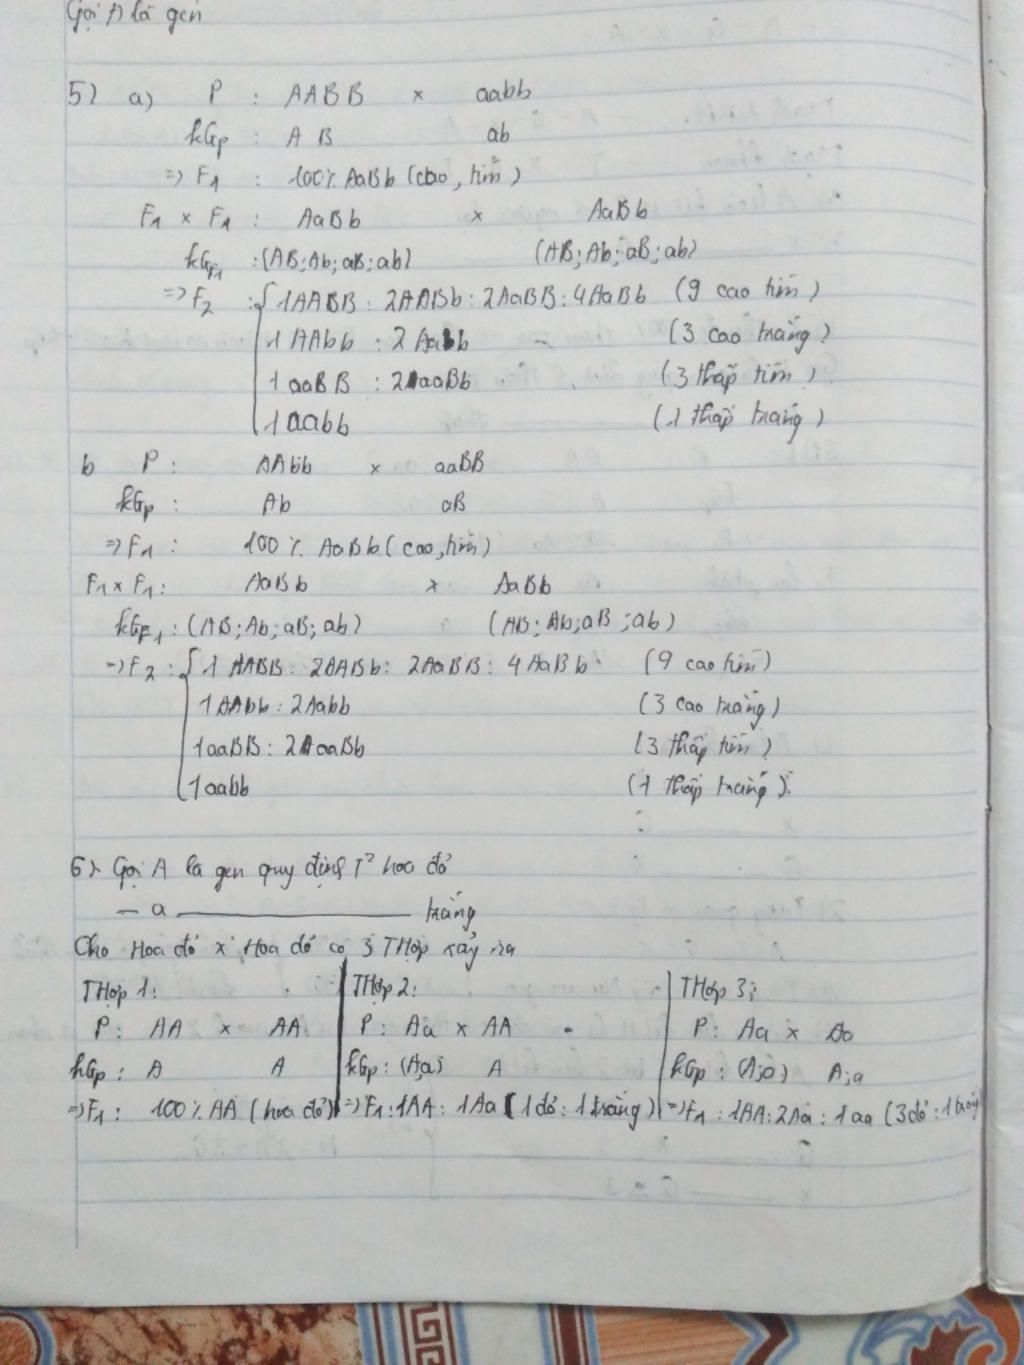 Gọi A là gen
5) a) P : AABB x aabb
kGp : AB ab
=> F1 : 100% AaBb (cao, tím)
F1 x F1 : AaBb x AaBb
kGF1 : (AB; Ab; aB; ab) (AB; Ab; aB; ab)
=> F2 : { 1AABB : 2AABb : 2AaBB : 4AaBb (9 cao tím)
1 AAbb : 2 Aabb (3 cao trắng)
1 aaBB : 2 aaBb (3 thấp tím)
1 aabb (1 thấp trắng)
b P : AAbb x aaBB
kGp : Ab aB
=> F1 : 100 % AaBb (cao, tím)
F1 x F1 : AaBb x AaBb
kGF1 : (AB; Ab; aB; ab) (AB; Ab; aB; ab)
=> F2 : { 1 AABB : 2AABb : 2AaBB : 4AaBb (9 cao tím)
1AAbb : 2Aabb (3 cao trắng)
1aaBB : 2 aaBb (3 thấp tím)
1aabb (1 thấp trắng).
6) Gọi A là gen quy định T² hoa đỏ
— a ———— trắng
Cho Hoa đỏ x Hoa đỏ có 3 THợp xảy ra
THợp 1: THợp 2: THợp 3:
P : AA x AA P : Aa x AA P : Aa x Aa
kGp : A A kGp : (A;a) A kGp : (A;a) A;a
=> F1 : 100% AA (hoa đỏ) => F1 : 1AA : 1Aa (1 đỏ : 1 trắng) => F1 : 1AA : 2Aa : 1aa (3 đỏ : 1